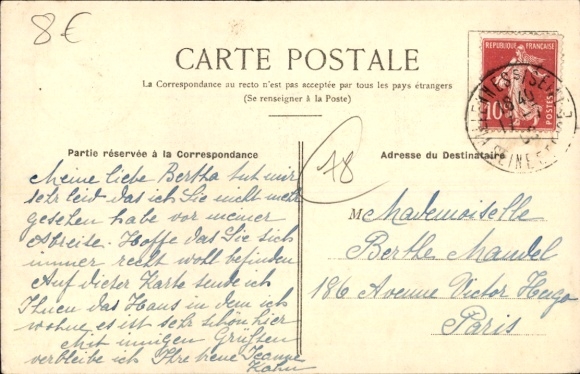 8€
CARTE POSTALE
La Correspondance au recto n'est pas acceptée par tous les pays étrangers
(Se renseigner à la Poste)
REPUBLIQUE FRANÇAISE
10
POSTES
Partie réservée à la Correspondance
Adresse du Destinataire
78
Meine liebe Bertha tut mir
sehr leid das ich Sie nicht mehr
gesehen habe vor meiner
Abreise. Hoffe das Sie sich
immer recht wohl befinden
Auf dieser Karte sende ich
Ihnen das Haus in dem ich
wohne es ist sehr schön hier
Mit innigen Grüßen
verbleibe ich Ihre treue Jeanne
Kahn
M Mademoiselle
Berthe Mandel
186 Avenue Victor Hugo
Paris